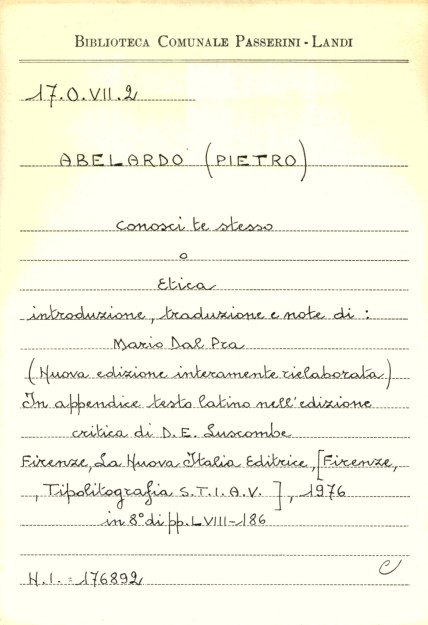 BIBLIOTECA COMUNALE PASSERINI - LANDI
17.O.VII.2
ABELARDO (PIETRO)
Conosci te stesso
o
Etica
introduzione, traduzione e note di :
Mario Dal Pra
(Nuova edizione interamente rielaborata)
In appendice testo latino nell'edizione
critica di D. E. Luscombe
Firenze, La Nuova Italia Editrice, [Firenze,
, Tipolitografia S.T.I.A.V. ] , 1976
in 8° di pp. LVIII-186
N.I. = 176892
C